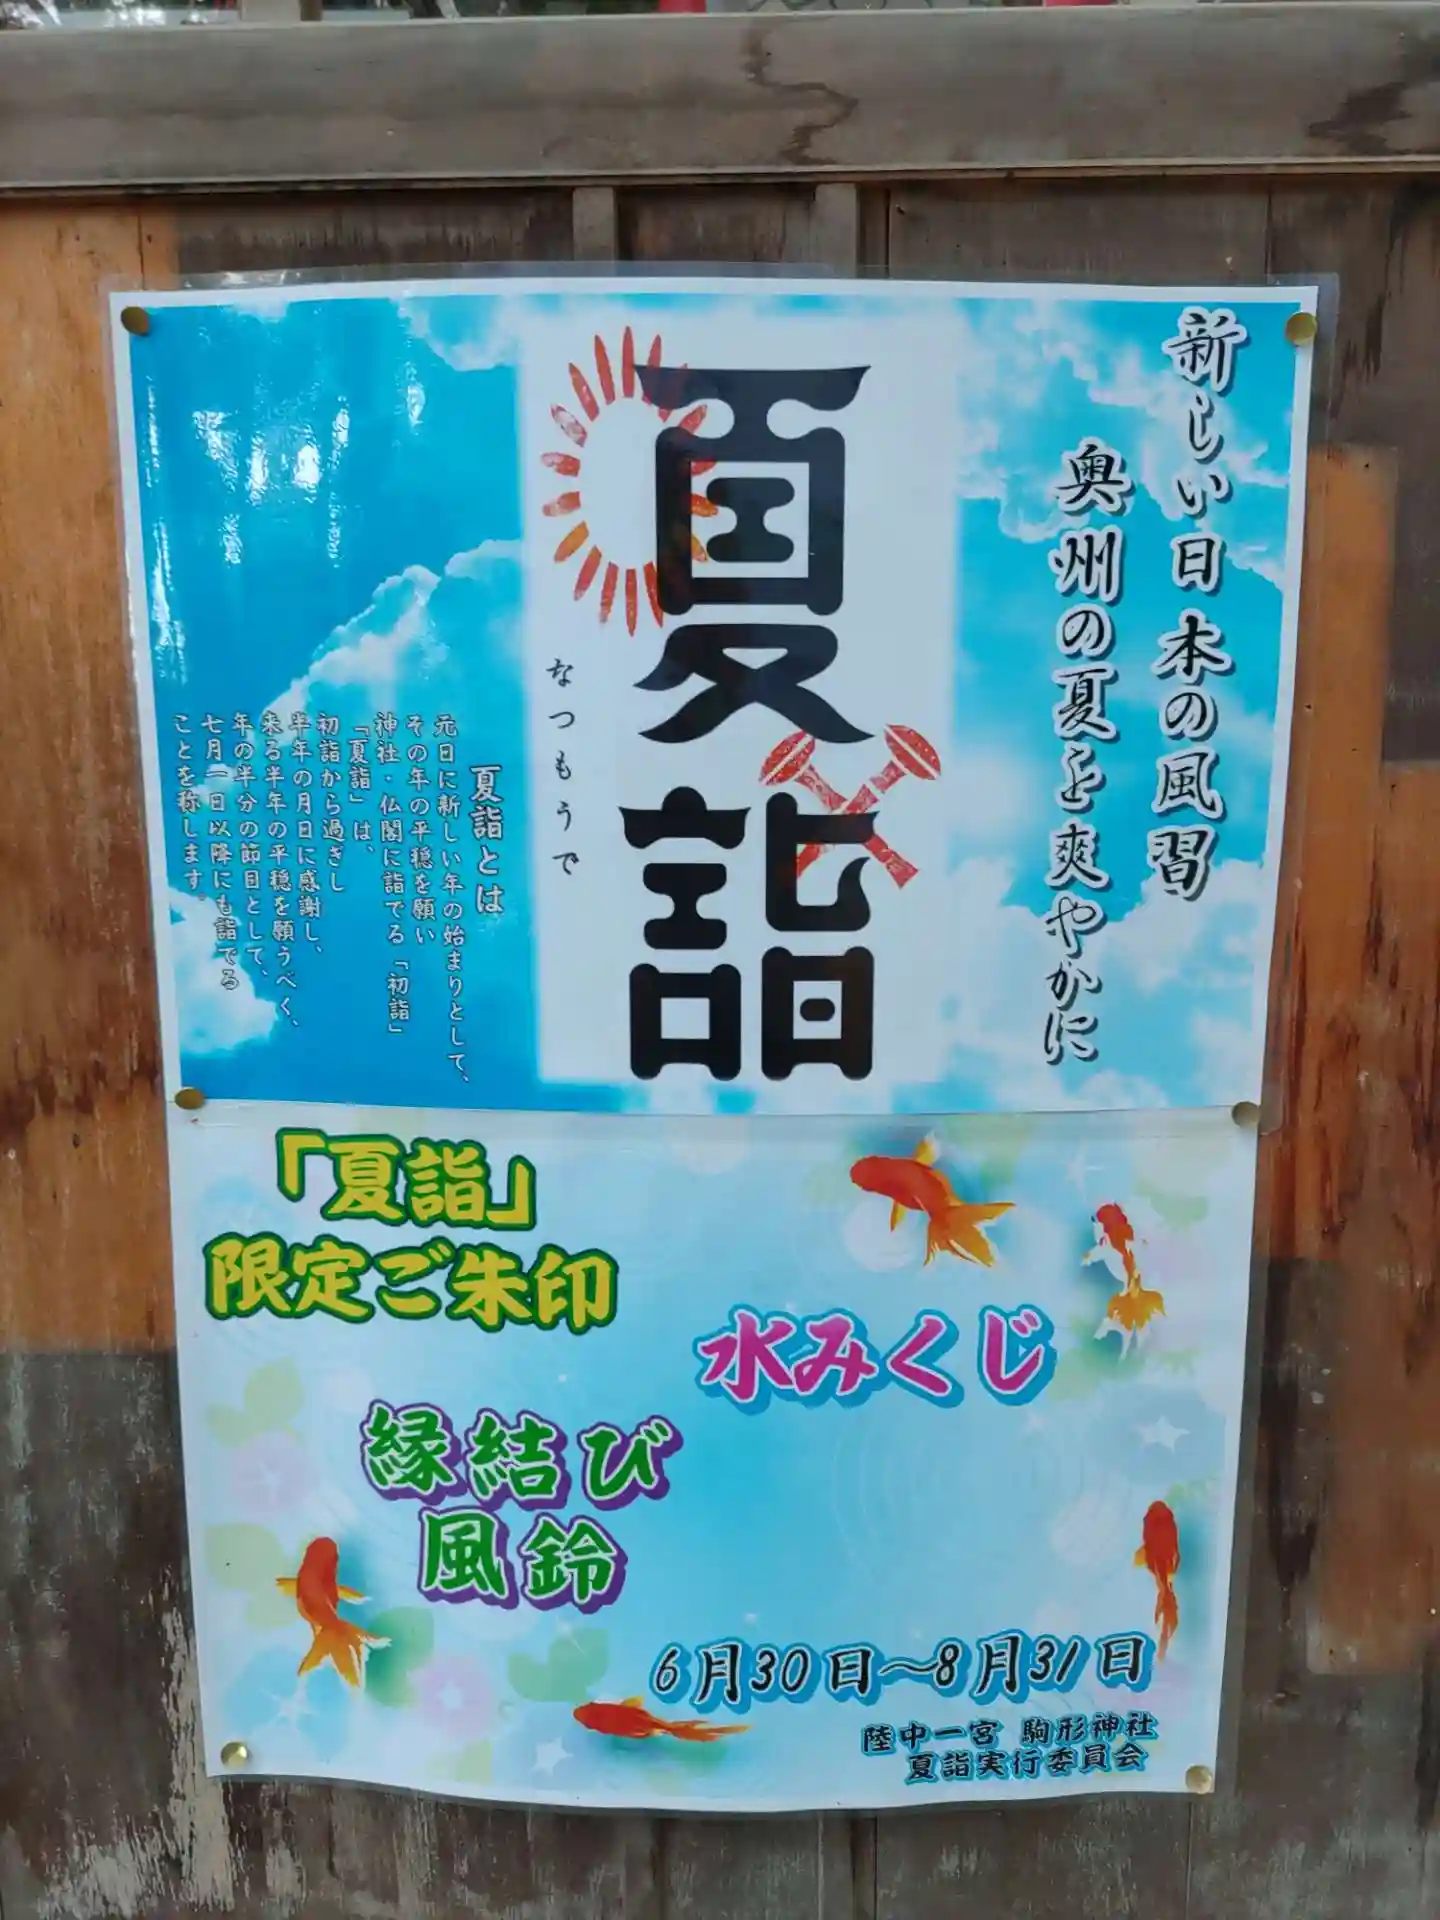 新しい日本の風習
奥州の夏を爽やかに
夏詣
なつもうで
夏詣とは
元日に新しい年の始まりとして、
その年の平穏を願い
神社・仏閣に詣でる「初詣」
「夏詣」は、
初詣から過ぎし
半年の月日に感謝し、
来る半年の平穏を願うべく、
年の半分の節目として、
七月一日以降にも詣でる
ことを称します。
「夏詣」
限定ご朱印
水みくじ
縁結び
風鈴
6月30日～8月31日
陸中一宮 駒形神社
夏詣実行委員会